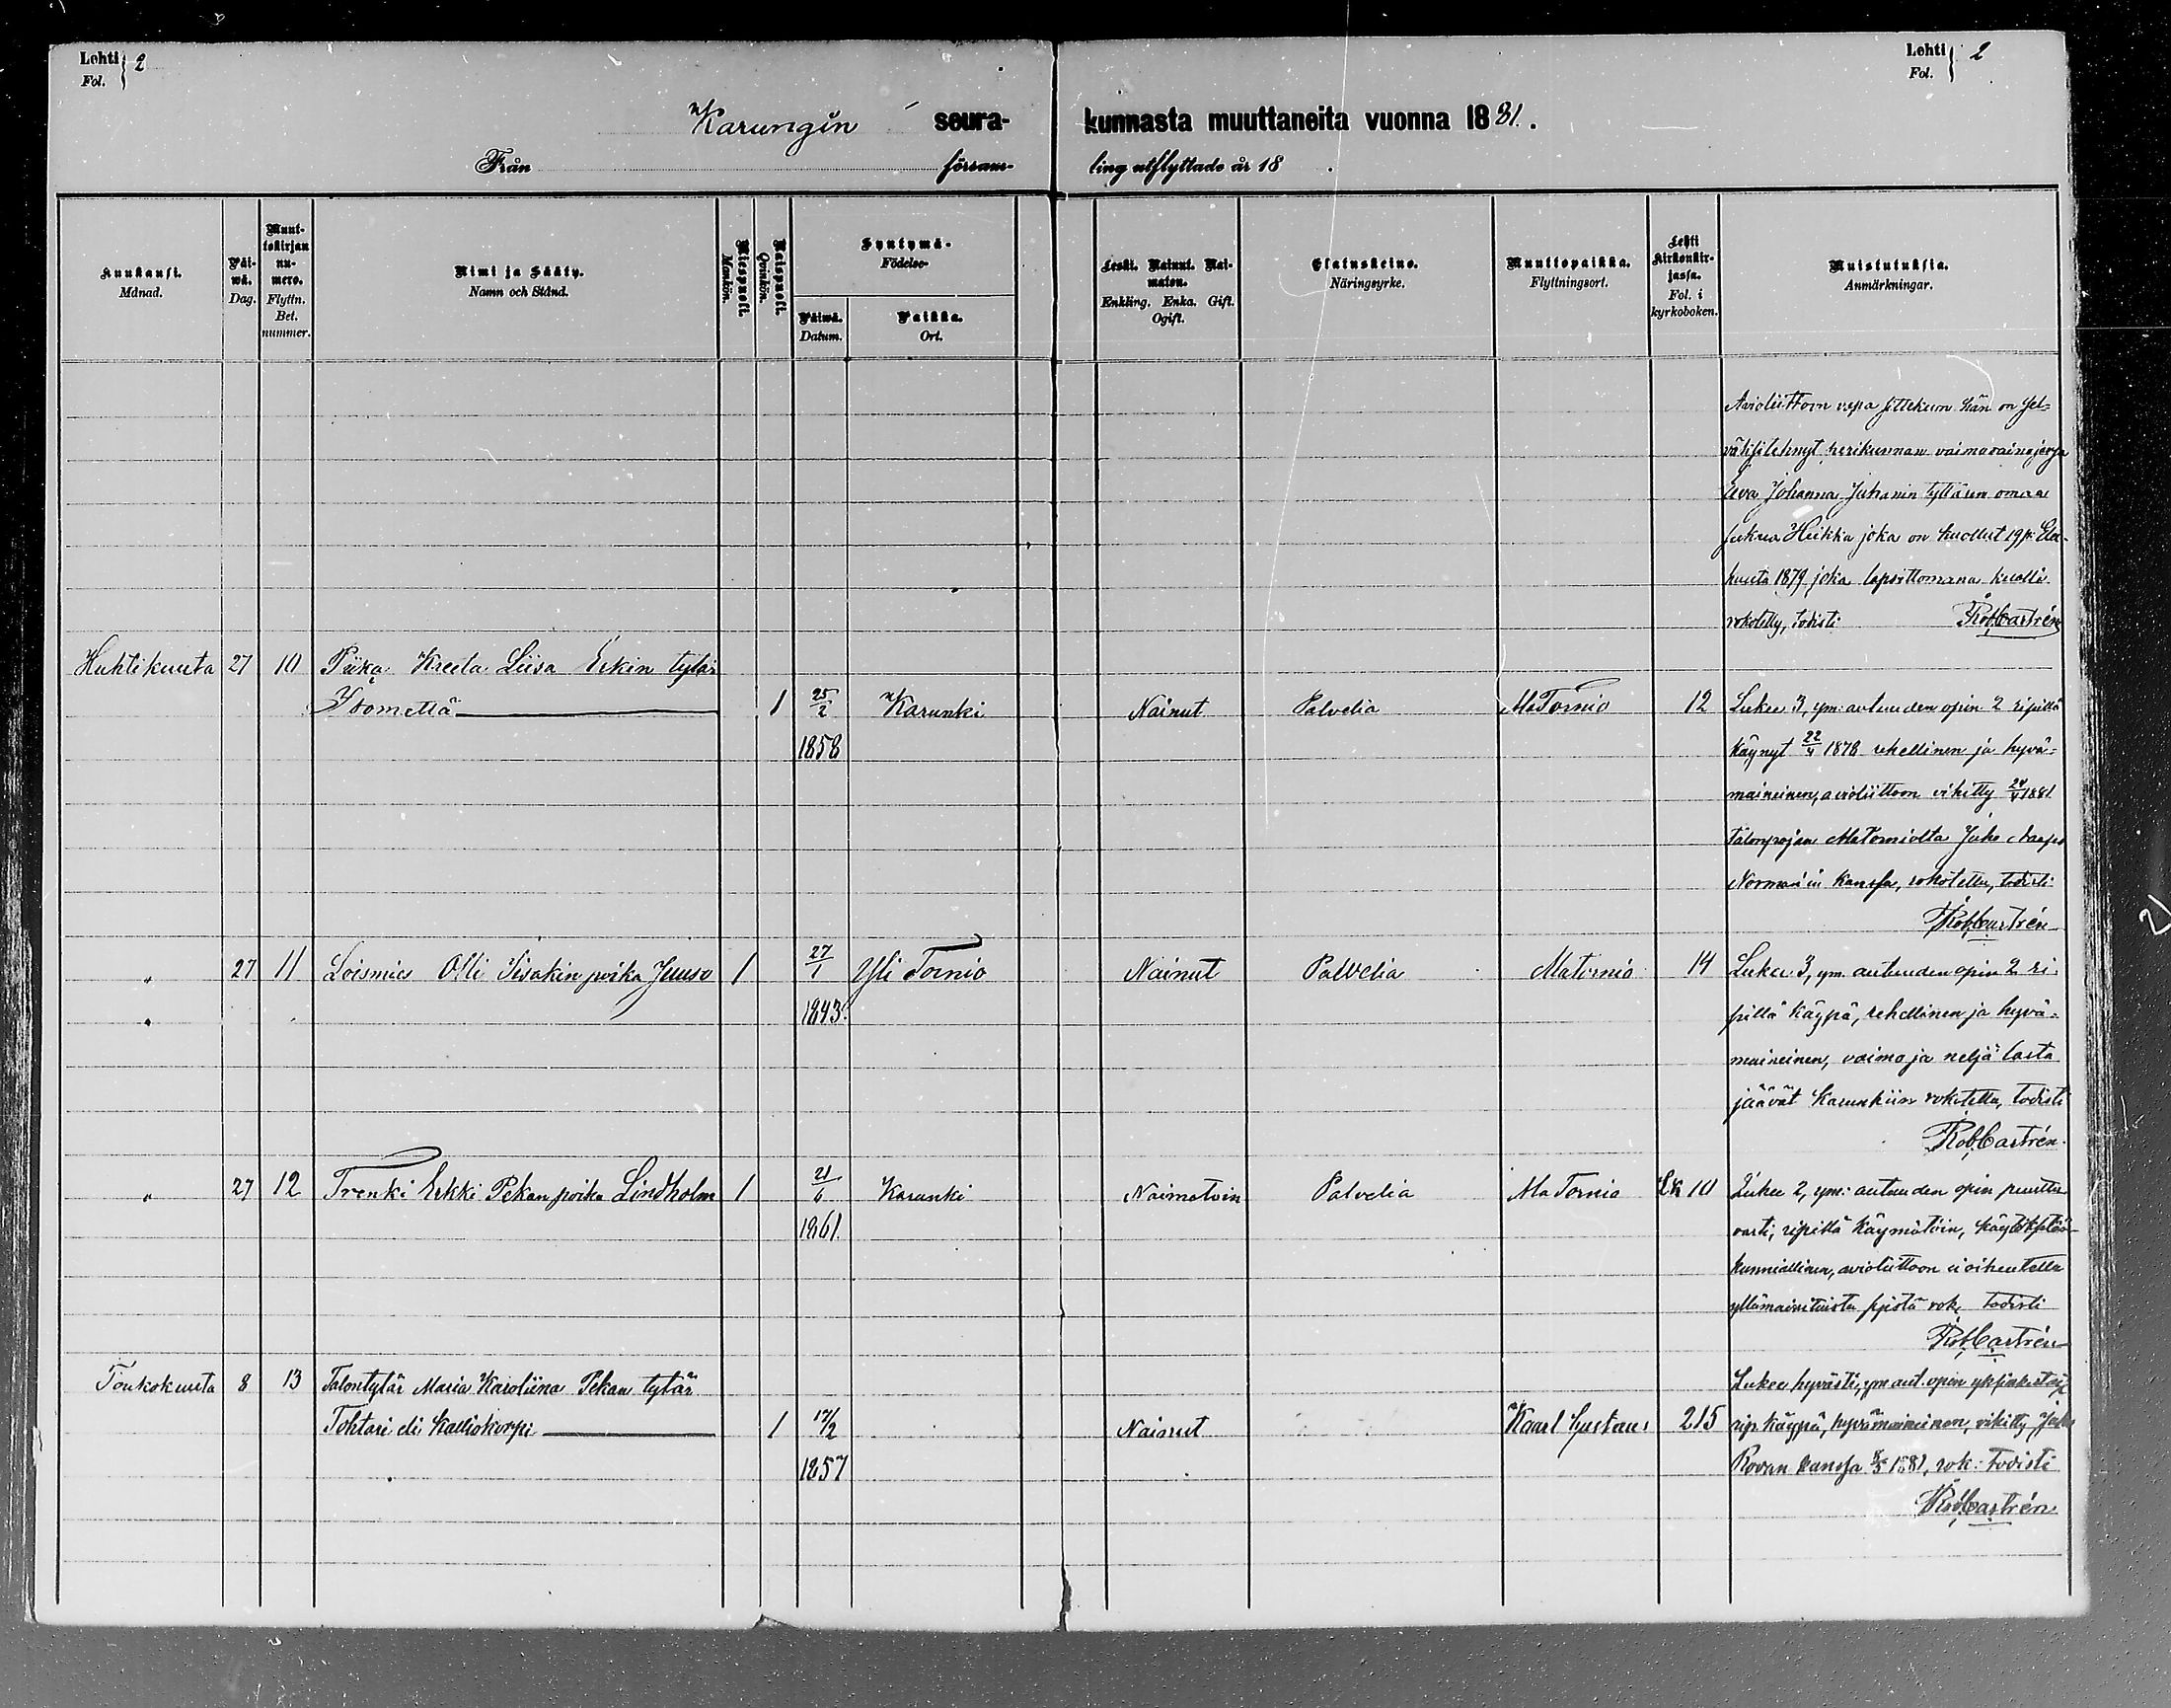 Lehti 2
Fol.
Lehti 2
Fol.
Karungin seura-kunnasta muuttaneita vuonna 1881.
Från församling utflyttade år 18 .
Kuukausi.
Månad.
Päiwä.
Dag.
Muuttokirjan numero.
Flyttn. Bet. nummer.
Nimi ja Sääty.
Namn och Stånd.
Miespuoli.
Mankön.
Naispuoli.
Qvinkön.
Syntymä-
Födelse-
Päiwä.
Datum.
Paikka.
Ort.
Leski. Nainut. Naimaton.
Enkling. Enka. Gift. Ogift.
Elatuskeino.
Näringsyrke.
Muuttopaikka.
Flyttningsort.
Lehti kirkonkirjassa.
Fol. i kyrkoboken.
Muistutuksia.
Anmärkningar.
Avioliittoon vapa sittekun hän on sel=
vätehnyt perikunnan vaimovainajansa
Eva Johanna Juhanin tyttären omaa
sukua Heikka joka on kuollut 19 p: Elo-
kuuta 1879 joka lapsittomana kuolli
rokotettu, todisti RobCastrén
Huhtikuuta 27 10 Piika Kreeta Liisa Erkin tytär
Ylometsä 1 25/2 Karunki Nainut Palvelia AlaTornio 12 Lukee 3, ym: autuuden opin 2 ripillä
1858 käynyt 22/4 1878 rehellinen ja hyvä=
maineinen, avioliittoon vihitty 24/4 1881
talonpojan AlaTorniolta Juho
kanssa, rokotettu, todisti
RobCastrén
" 27 11 Loismies Olli Iisakin poika Juuso 1 27/1 Yli Tornio Nainut Palvelia AlaTornio 14 Lukee 3, ym. autuuden opin 2 ri-
" 1843. pillä käypä, rehellinen ja hyvä=
maineinen, vaimo ja neljä lasta
jäävät Karunkiin rokotettu, todisti
RobCastrén.
" 27 12 Trenki Erkki Pekan poika Lindholm 1 21/6 Karunki Naimatoin Palvelia Ala Tornio Lk 10 Lukee 2, ym: autuuden opin puuttu
1861. vasti, ripillä käymätöin, käytöksstään
kunniallinen, avioliittoon ei oikeutettu
yllämainituista syistä rok. todisti
RobCastrén
Toukokuuta 8 13 Talontytär Maria Karoliina Pekan tytär Lukee hyvästi, ym aut. opin
Tohtari eli Kalliokorpi 1 17/2 Nainut Kaarl Gustavi 215 rip. käypä, hyvämaineinen, vihitty Juho
1857 Rovan kanssa 8/5 1881, rok: todisti
RobCastrén